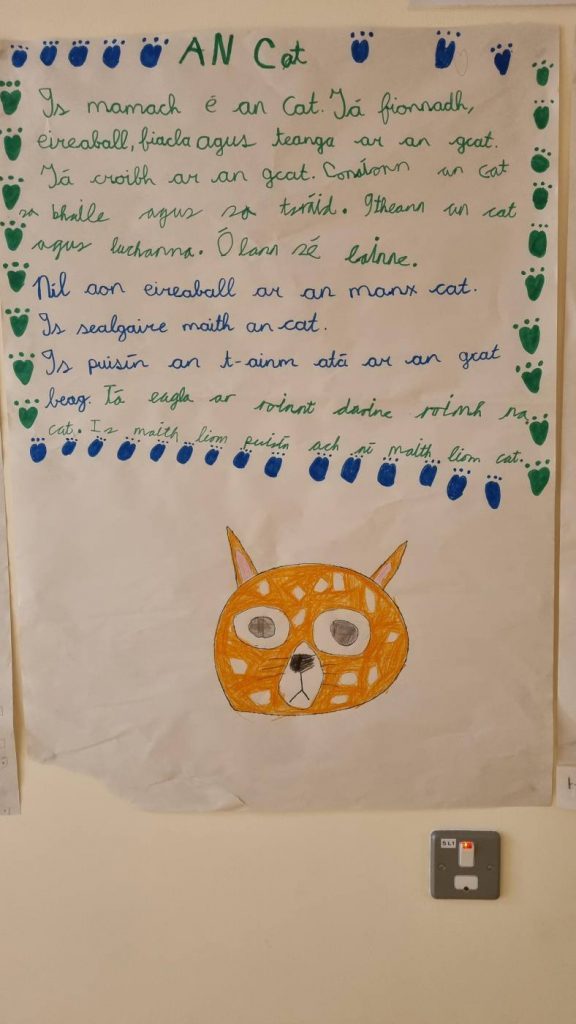 AN Cat
Is mamach é an Cat. Tá fionnadh,
eireaball, fiacla agus teanga ar an gcat.
Tá croibh ar an gcat. Conaíonn an Cat
sa bhaile agus sa tsráid. Itheann an cat
agus luchanna. Ólann sé bainne.
Níl aon eireaball ar an manx cat.
Is sealgaire maith an cat.
Is puisín an t-ainm atá ar an gcat
beag. Tá eagla ar roinnt daoine roimh na
cat. Is maith liom puisín ach ní maith liom cat.
SL1